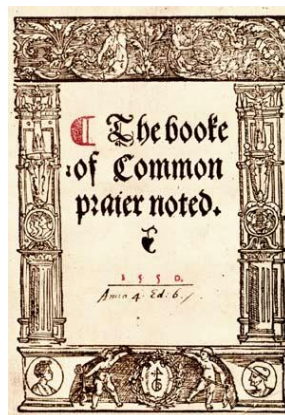 ¶ The booke
of Common
praier noted.
1550.
Anno 4. Ed. 6.